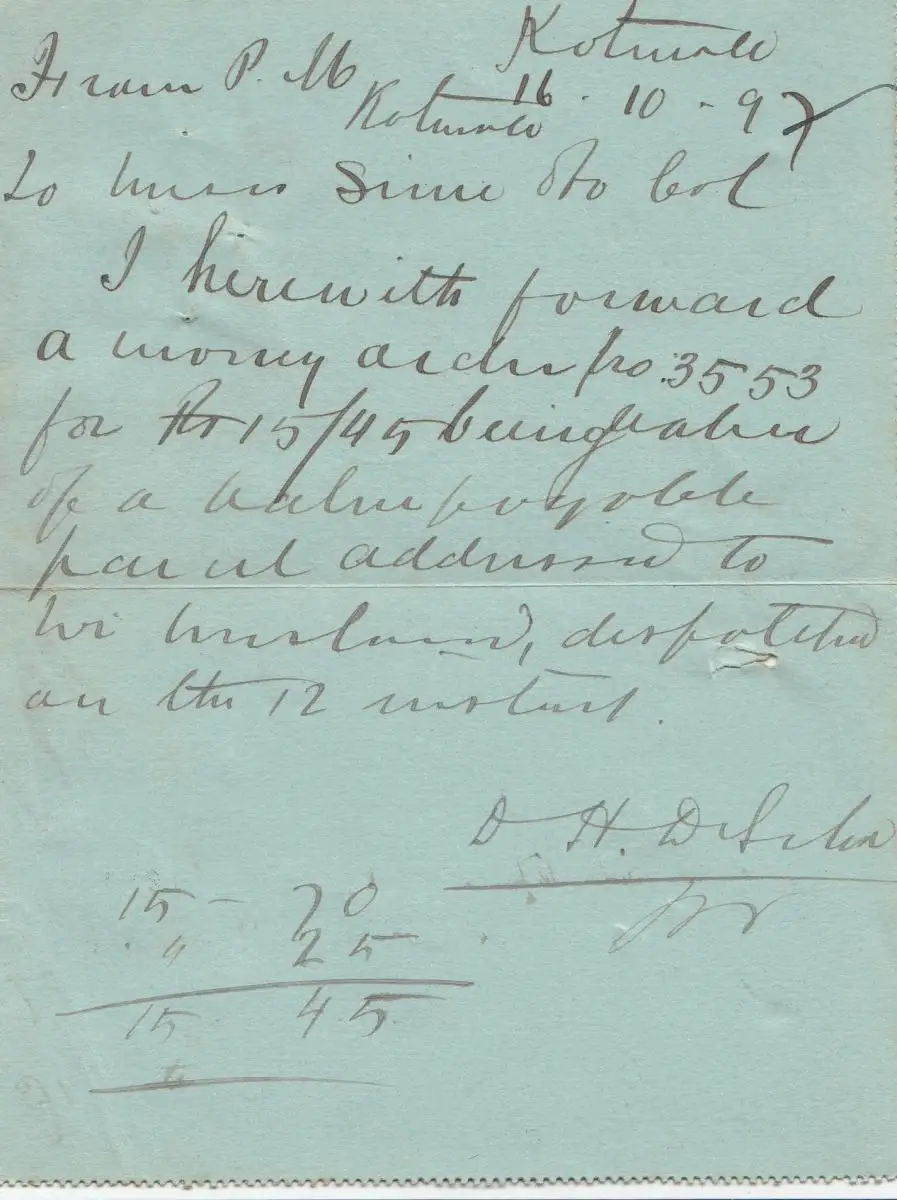 Kotmale
From P. M
Kotmale 16 - 10 - 97
To Messrs Sime & Co Col
I herewith forward
a money order No 3553
for Rs 15/45 being value
of a value payable
parcel addressed to
despatched
on the 12 instant.
D H. DeSilva
15 - 20
" 25
15 45